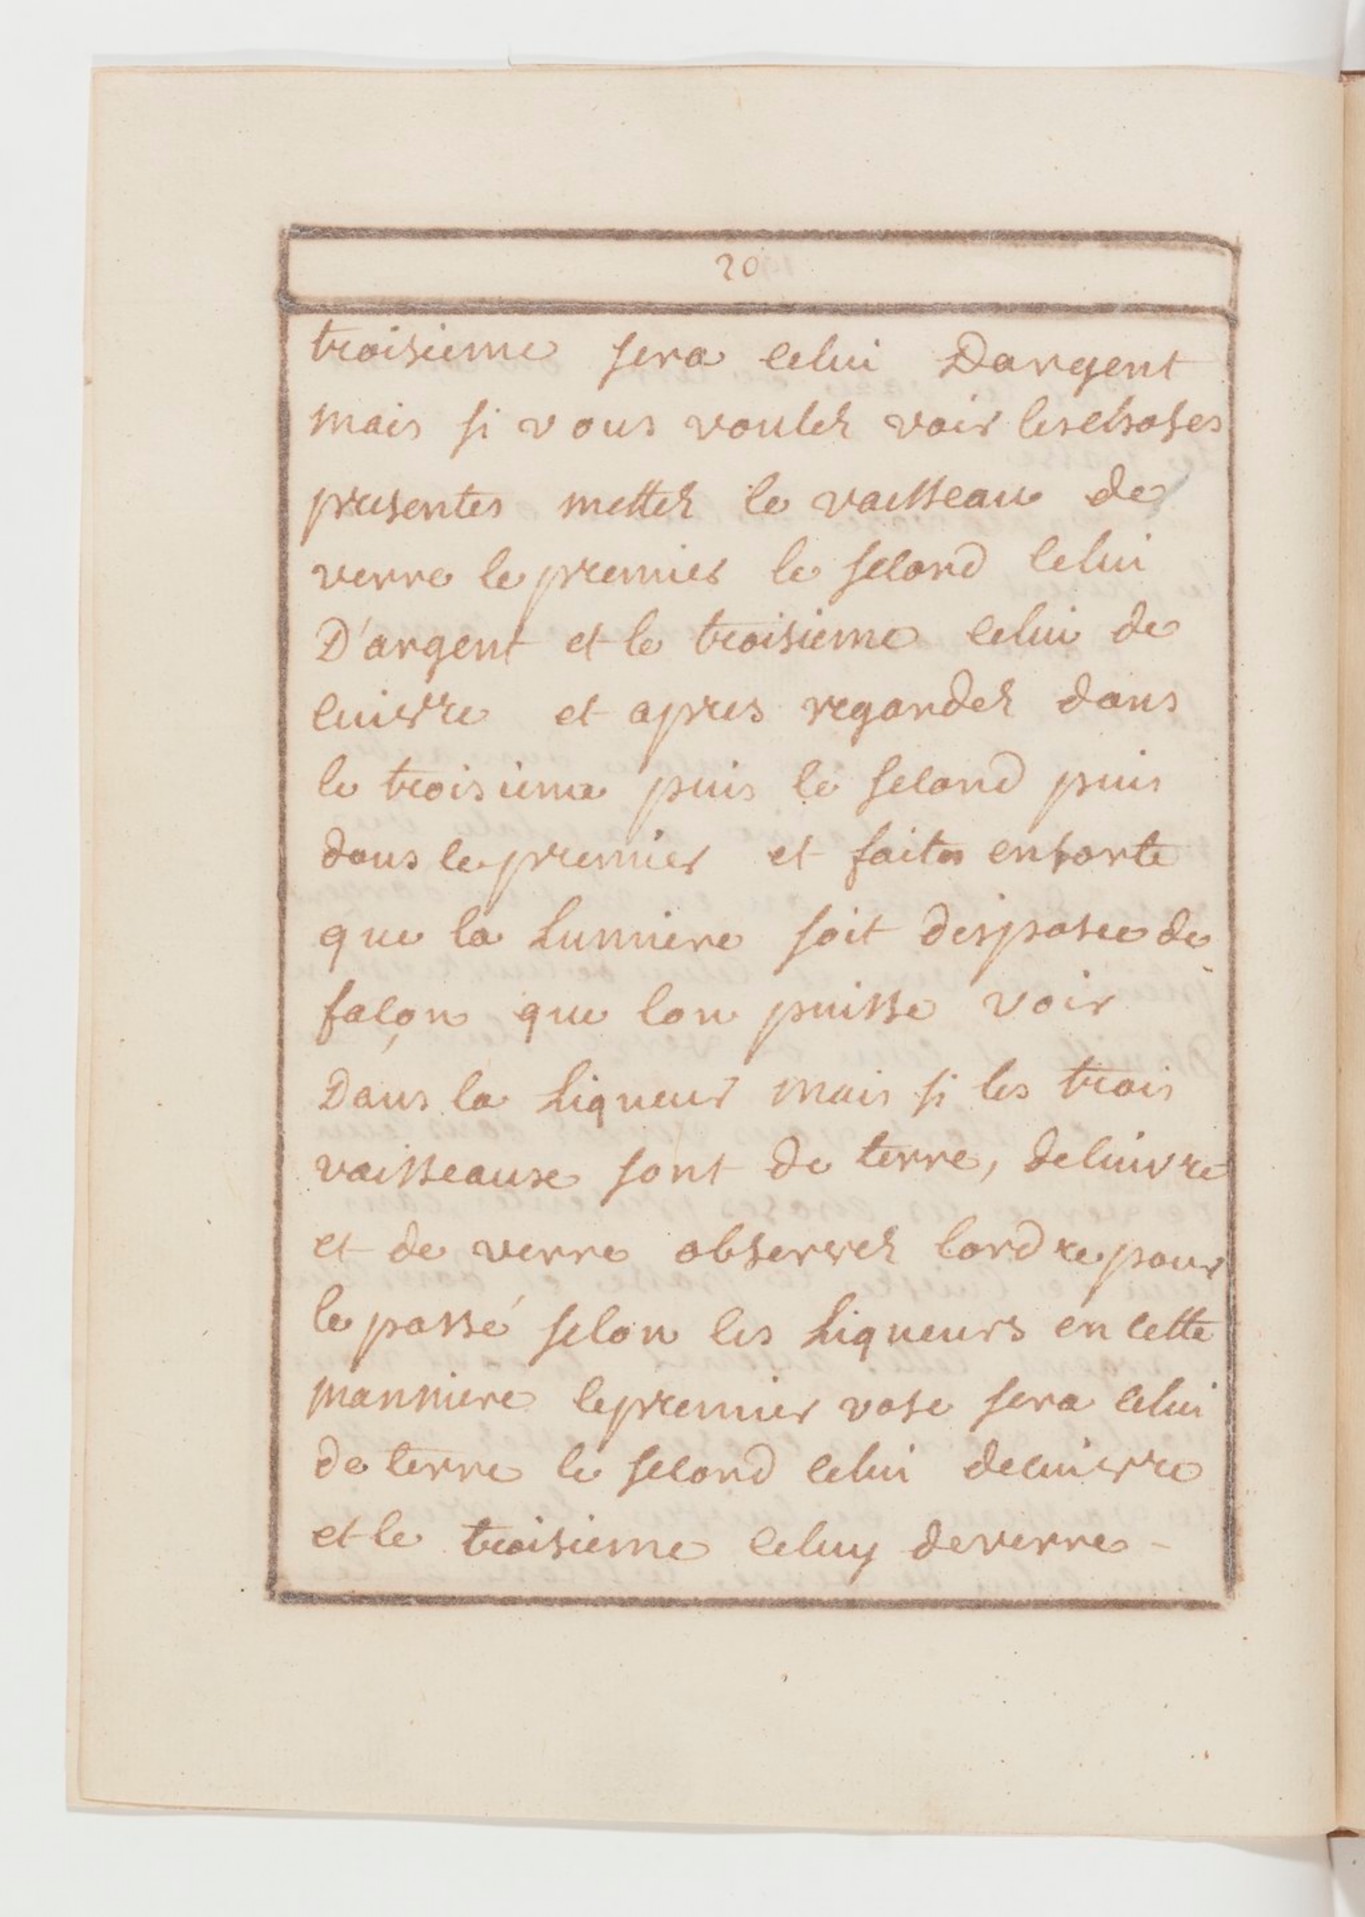 20
troisieme sera celui Dargent
mais si vous voulez voir les choses
presentes mettez le vaisseau de
verre le premier le second celui
D'argent et le troisieme celui de
cuivre et apres regardez dans
le troisieme puis le second puis
dans le premier et faites ensorte
que la Lumiere soit disposée de
façon que lon puisse voir
Dans la Liqueur mais si les trois
vaisseaux sont de terre, de cuivre
et de verre observez lordre pour
le passé selon les Liqueurs en cette
manniere le premier vase sera celui
de terre le second celui de cuivre
et le troisieme celuy de verre -